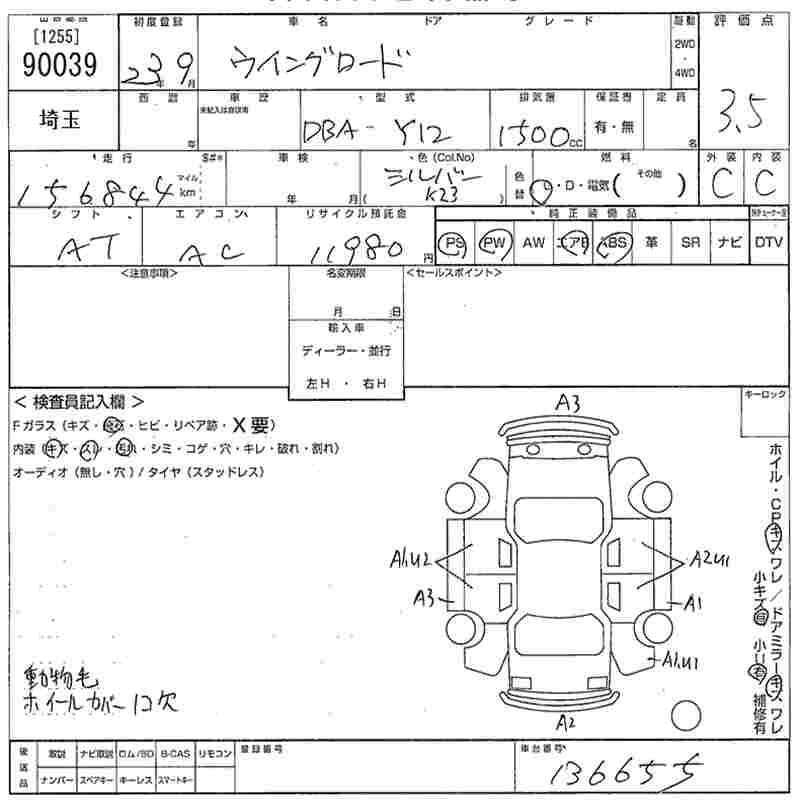 出品番号 初度登録 車名 ドア グレード 駆動 評価点
[1255]
90039 23年9月 ウイングロード 2WD・4WD 3.5
埼玉 西暦 年 車歴 未記入は自家用 型式 DBA-Y12 排気量 1500cc 保証書 有・無 定員 名
走行 156844 マイル km 車検 年 月 色(Col.No) シルバー (K23) 色替 燃料 G・D・電気( その他 ) 外装 C 内装 C
シフト AT エアコン AC リサイクル預託金 11980円 純正装備品
PS PW AW エアB ABS 革 SR ナビ DTV
<注意事項> 名変期限 <セールスポイント>
月 日
輸入車
ディーラー・並行
左H ・ 右H
キーロック
< 検査員記入欄 >
Fガラス(キズ・飛石・ヒビ・リペア跡・X要)
内装(キズ・スレ・汚れ・シミ・コゲ・穴・キレ・破れ・割れ)
オーディオ(無し・穴)/タイヤ(スタッドレス)
A3
A1.U2 A2U1
A3 A1
A1.U1
A2
ホイル・CPキズワレ/ドアミラーキズワレ
小キズ有 小U有 補修有
動物毛
ホイールカバー1コ欠
後送品 取説 ナビ取説 ロム/SD B-CAS リモコン 登録番号 車台番号
ナンバー スペアキー キーレス スマートキー 136655